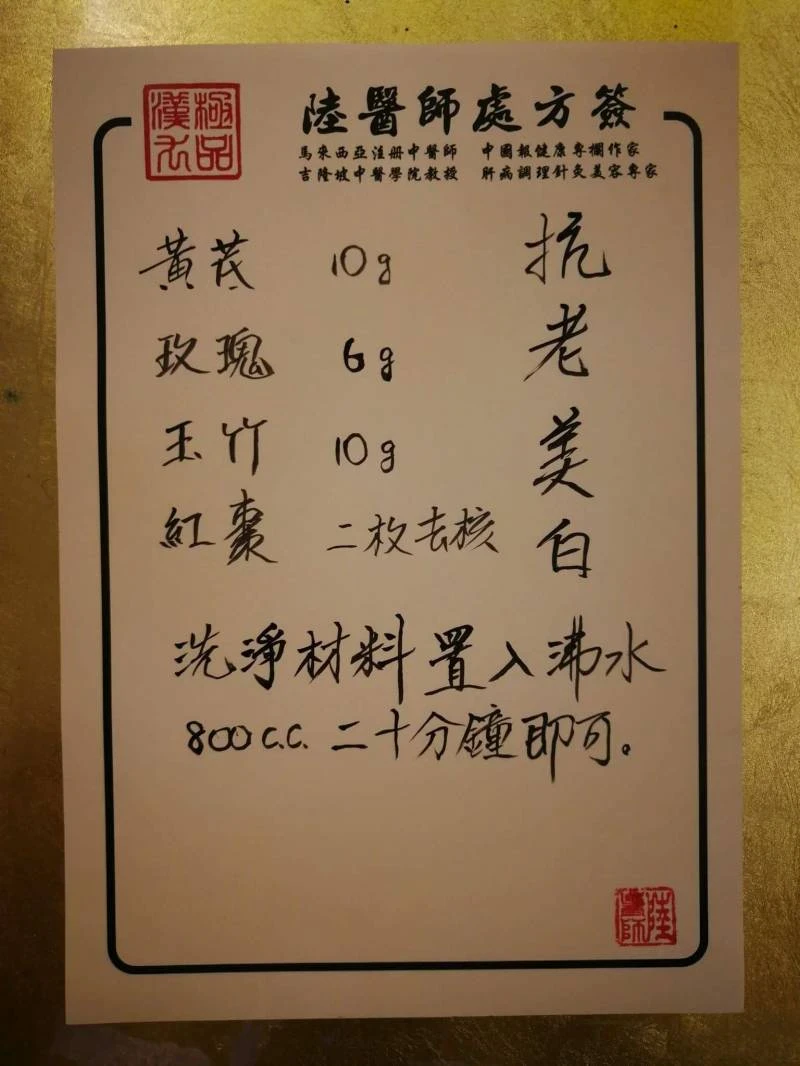 極品
漢方
陸醫師處方簽
馬來西亞注册中醫師 中國報健康專欄作家
吉隆坡中醫學院教授 肝病調理針灸美容專家
抗老美白
黃茋 10g
玫瑰 6g
玉竹 10g
紅棗 二枚去核
洗淨材料置入沸水
800c.c. 二十分鐘即可。
陸醫師